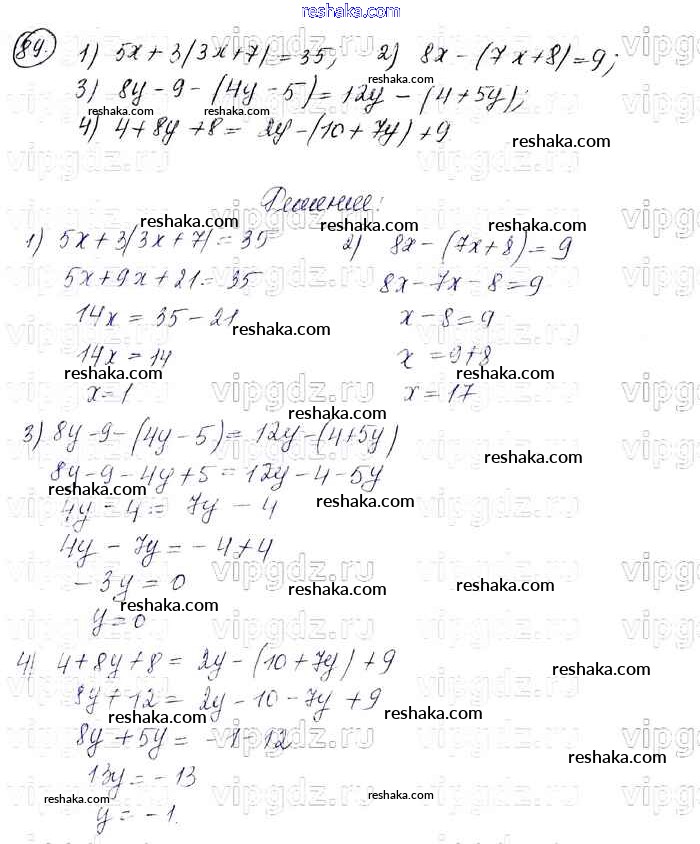 reshaka.com
89. 1) 5x + 3(3x+7) = 35; 2) 8x - (7x+8) = 9;
reshaka.com
3) 8y - 9 - (4y - 5) = 12y - (4+5y);
reshaka.com
4) 4 + 8y + 8 = 2y - (10 + 7y) + 9
reshaka.com
Решение:
reshaka.com
reshaka.com reshaka.com
1) 5x + 3(3x+7) = 35 2) 8x - (7x+8) = 9
5x + 9x + 21 = 35 8x - 7x - 8 = 9
vipgdz.ru
14x = 35 - 21 x - 8 = 9
reshaka.com
14x = 14 x = 9+8
reshaka.com reshaka.com
x = 1 x = 17
vipgdz.ru
reshaka.com
3) 8y - 9 - (4y - 5) = 12y - (4+5y)
reshaka.com
8y - 9 - 4y + 5 = 12y - 4 - 5y
reshaka.com
reshaka.com
4y - 4 = 7y - 4
4y - 7y = -4 + 4
vipgdz.ru
-3y = 0
reshaka.com reshaka.com
reshaka.com
y = 0
vipgdz.ru
4) 4 + 8y + 8 = 2y - (10 + 7y) + 9
reshaka.com
8y + 12 = 2y - 10 - 7y + 9
reshaka.com
8y + 5y = -1 - 12
vipgdz.ru
reshaka.com
13y = -13
reshaka.com reshaka.com
vipgdz.ru
y = -1.